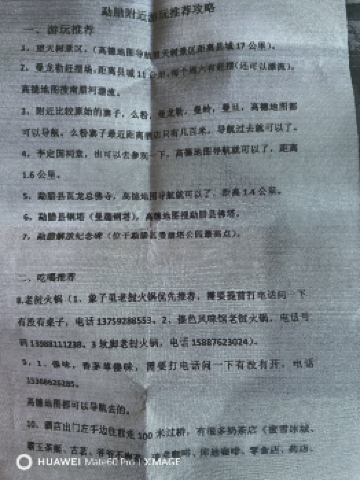 勐腊附近游玩推荐攻略
一、游玩推荐
1、望天树景区，(高德地图导航望天树景区距离县城 17 公里)。
2、曼龙勒赶摆场，距离县城 11 公里，每个周六有赶摆(还可以漂流)。
高德地图搜南腊河漂流。
3、附近比较原始的寨子，么粉，曼龙勒，曼岭，曼旦，高德地图都
可以导航，么粉寨子最近距离酒店只有几百米，导航过去就可以了。
4、李定国祠堂，也可以去参观一下，高德地图导航就可以了，距离
1.6 公里。
5、勐腊县瓦龙总佛寺，高德地图导航就可以了，距离 1.4 公里。
6、勐腊县铜塔（曼蚌铜塔），高德地图搜勐腊县佛塔。
7、勐腊解放纪念碑（位于勐腊县 公园最高点）。
二、吃喝推荐
8.老树火锅（1、象子里老树火锅优先推荐，需要提前打电话问一下
有没有桌子，电话 13759288553、2、傣色风味饭老树火锅，电话号
码 13988111238、3 老树火锅，电话 15887623024）。
9、1、傣味，香茅草傣味，需要打电话问一下有没有开，电话
高德地图都可以导航去的。
10、酒店出门左手边往前走 100 米过桥，有很多奶茶店（蜜雪冰城、
霸王茶姬、古茗、爷爷不泡茶、 咖啡、库迪咖啡、零食店、药店、
HUAWEI Mate60 Pro | XMAGE